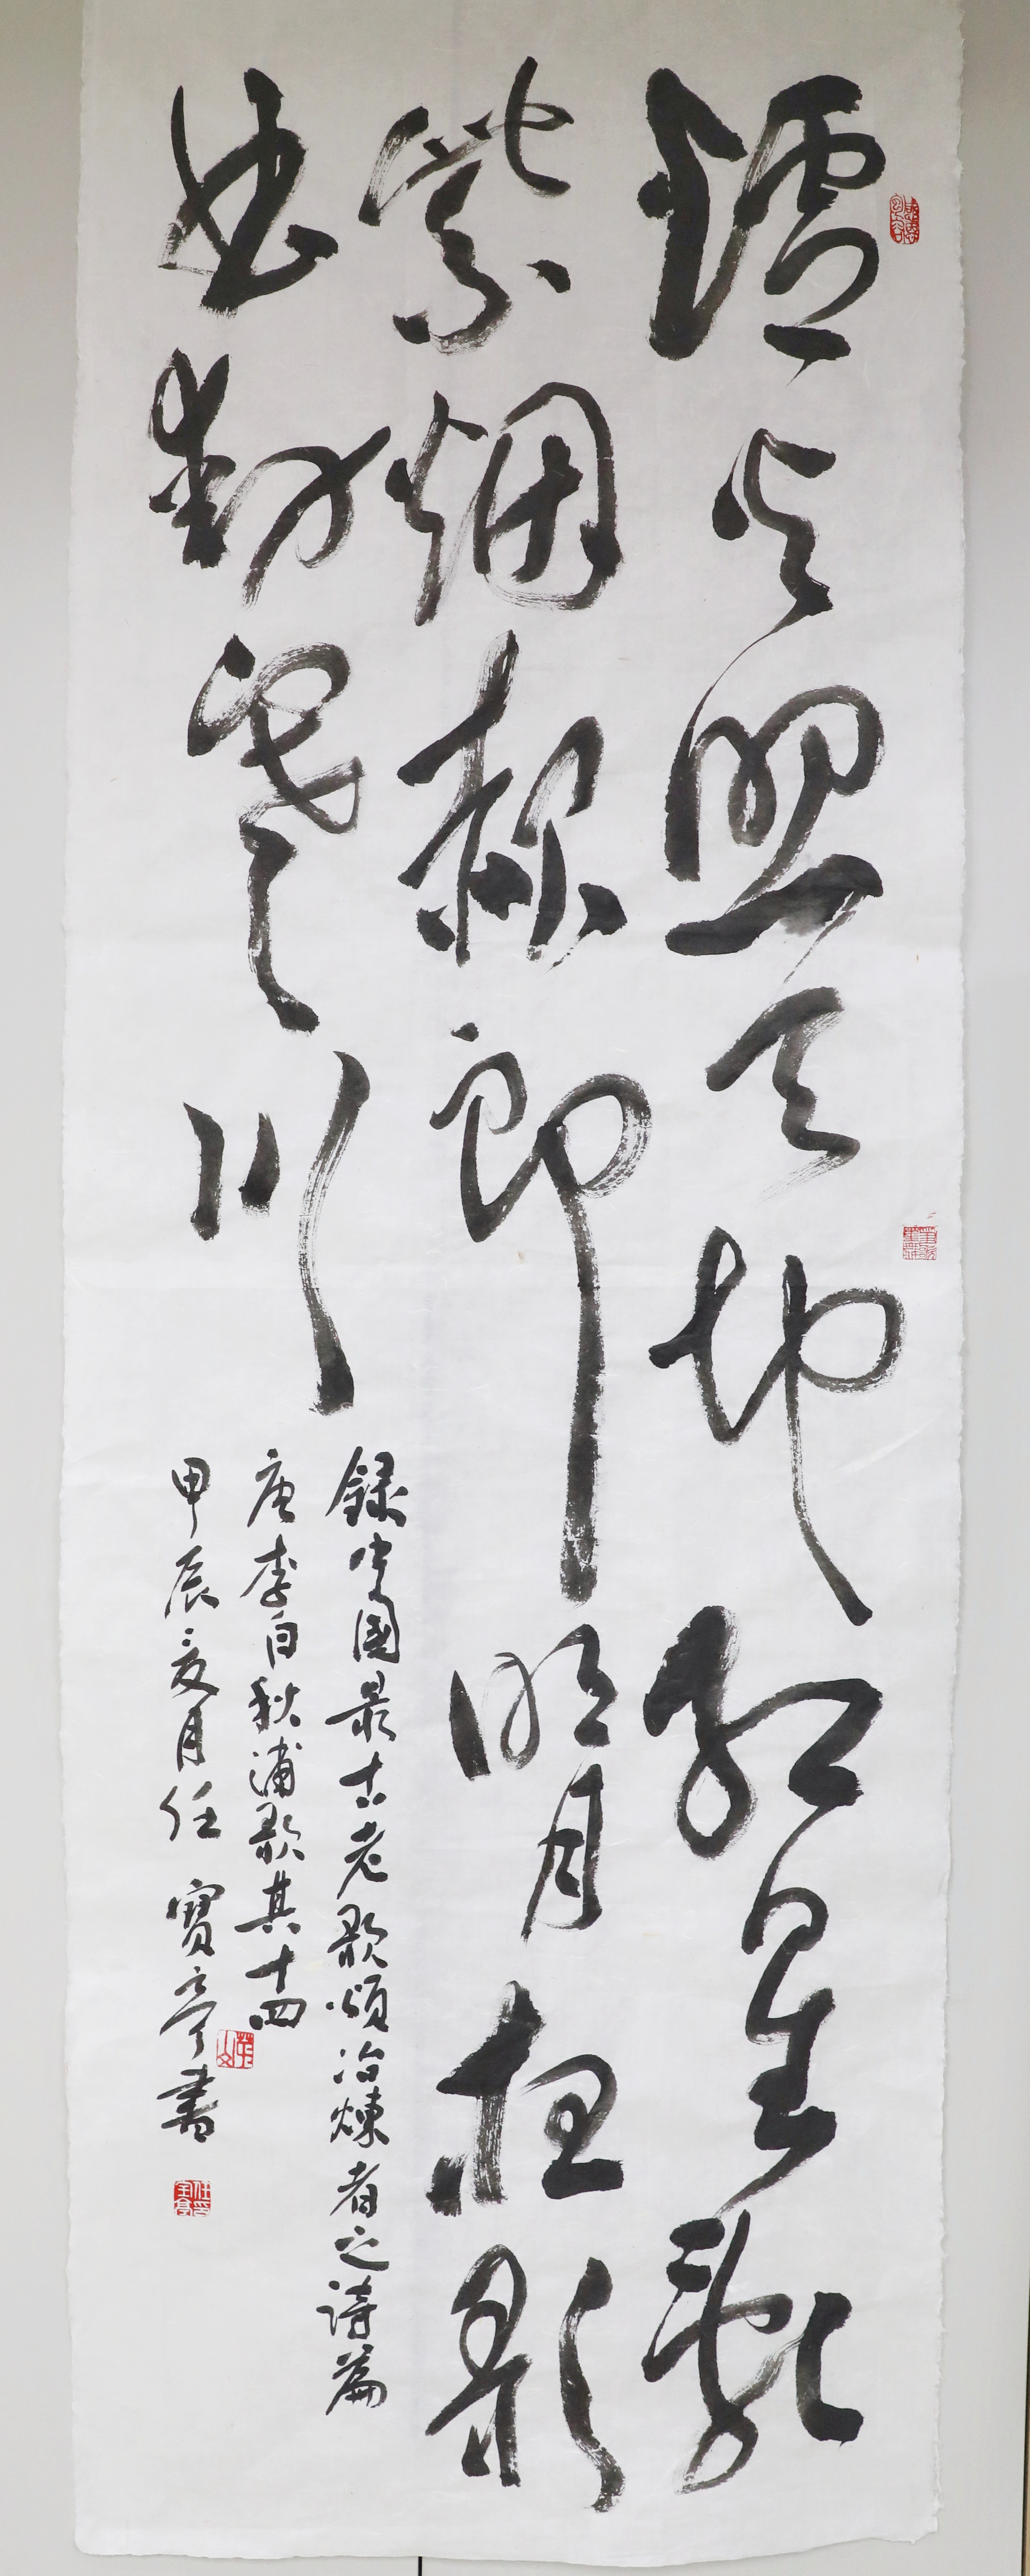 爐火照天地紅星亂
紫烟赧郎明月夜歌
曲動寒川
錄中國最古老歌頌冶煉者之詩篇
唐李白秋浦歌其十四
甲辰夏月任寶亭書